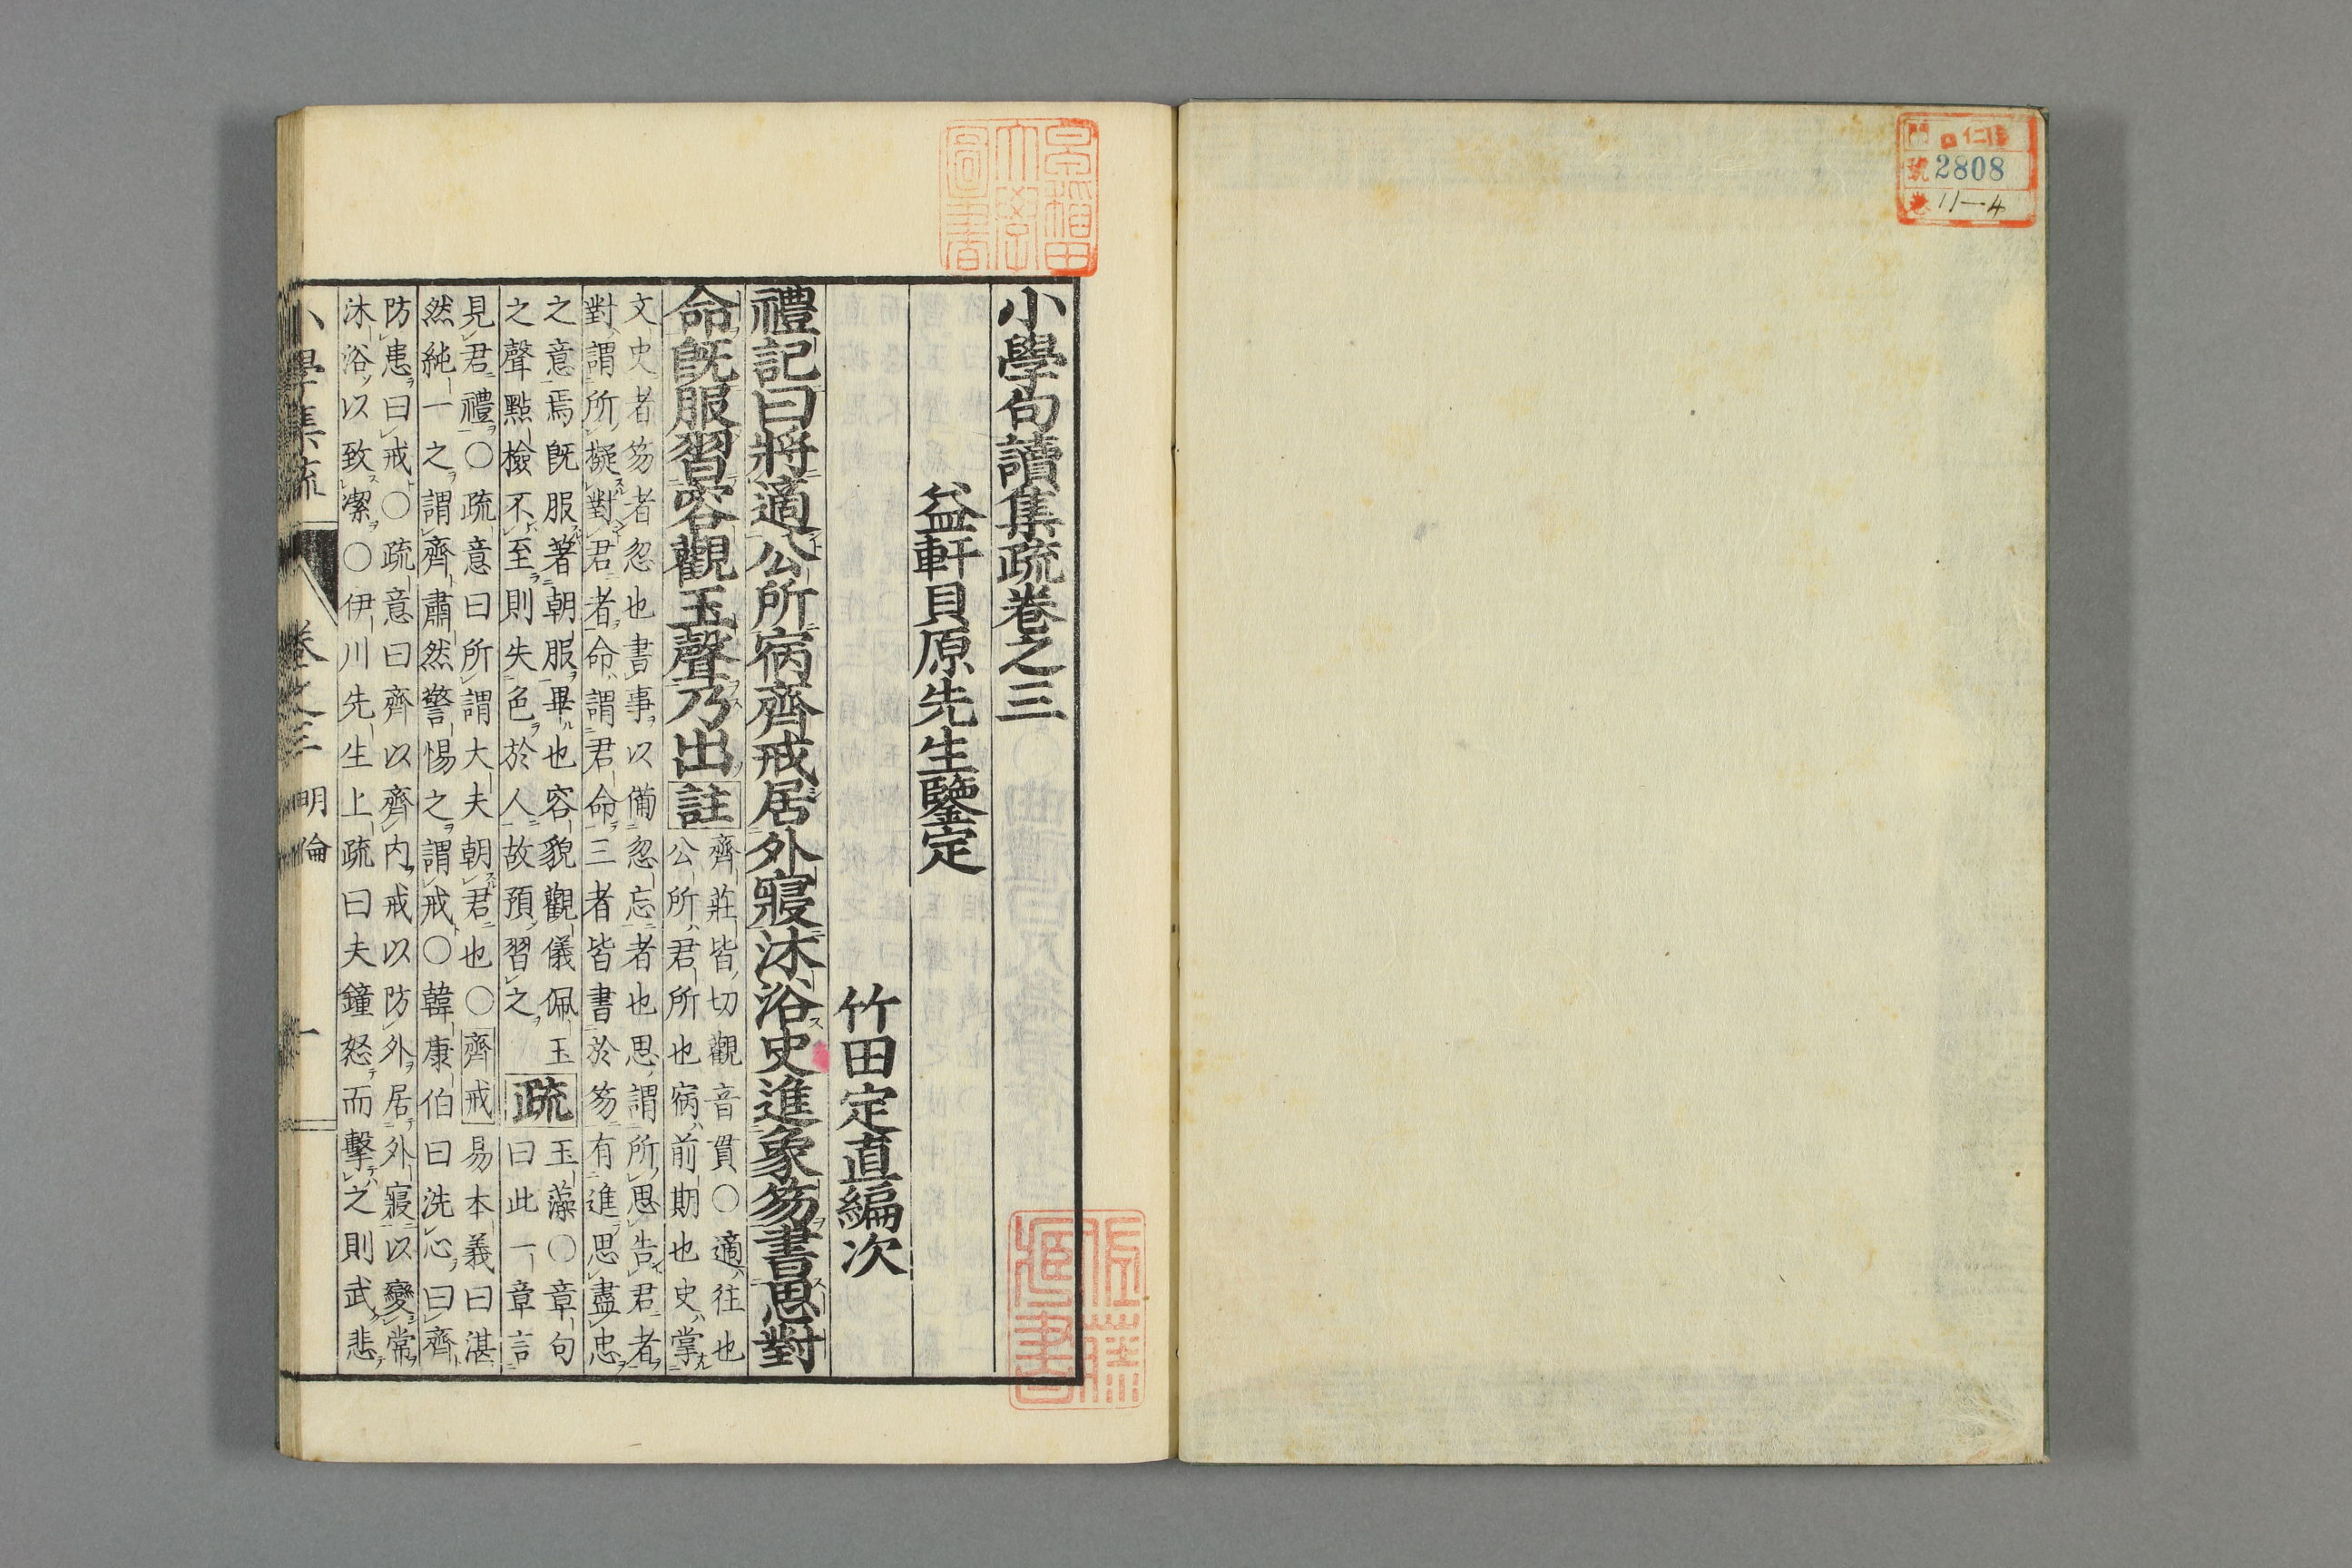 門 仁
號 2808
卷 11-4
早稲田
大學
圖書
小學句讀集疏卷之三
益軒貝原先生鑒定
竹田定直編次
禮記曰將適公所宿齊戒居外寢沐浴史進象笏書思對
命旣服習容觀玉聲乃出註
齊莊皆切觀音貫○適往也
公所君所也宿前期也史掌
文史者笏者忽也書事以備忽忘者也思謂所思告君者
對謂所擬對君者命謂君命三者皆書於笏有進思盡忠
之意焉旣服著朝服畢也容容貌觀儀佩玉
之聲點檢不至則失色於人故預習之
疏
玉藻○章句
曰此一章言
見君禮○疏意曰所謂大夫朝君也○齊戒易本義曰湛
然純一之謂齊肅然警惕之謂戒○韓康伯曰洗心曰齊
防患曰戒○疏意曰齊以齊内戒以防外居外寢以變常
沐浴以致潔○伊川先生上疏曰夫鐘怒而擊之則武悲
小學集疏 卷之三 明倫 一
佐藤
藏書